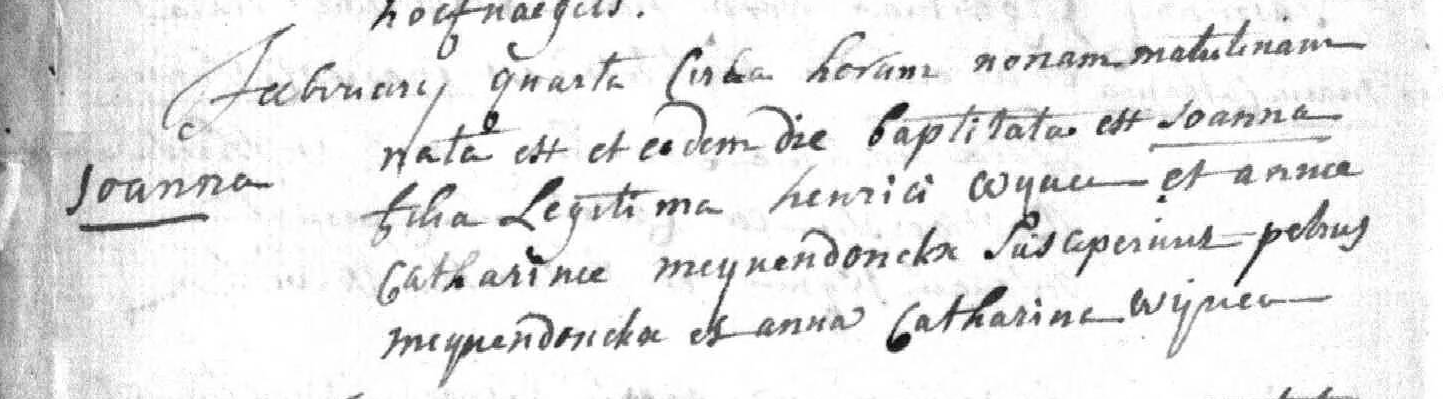 hoefnaegels.
Februarij quarta Circa horam nonam matutinam
nata est et eodem die baptitata est Joanna
Joanna
filia Legitima henrici wyne et annæ
Catharinæ meynendonckx Susceperunt petrus
meynendonckx et anna Catharina wijne